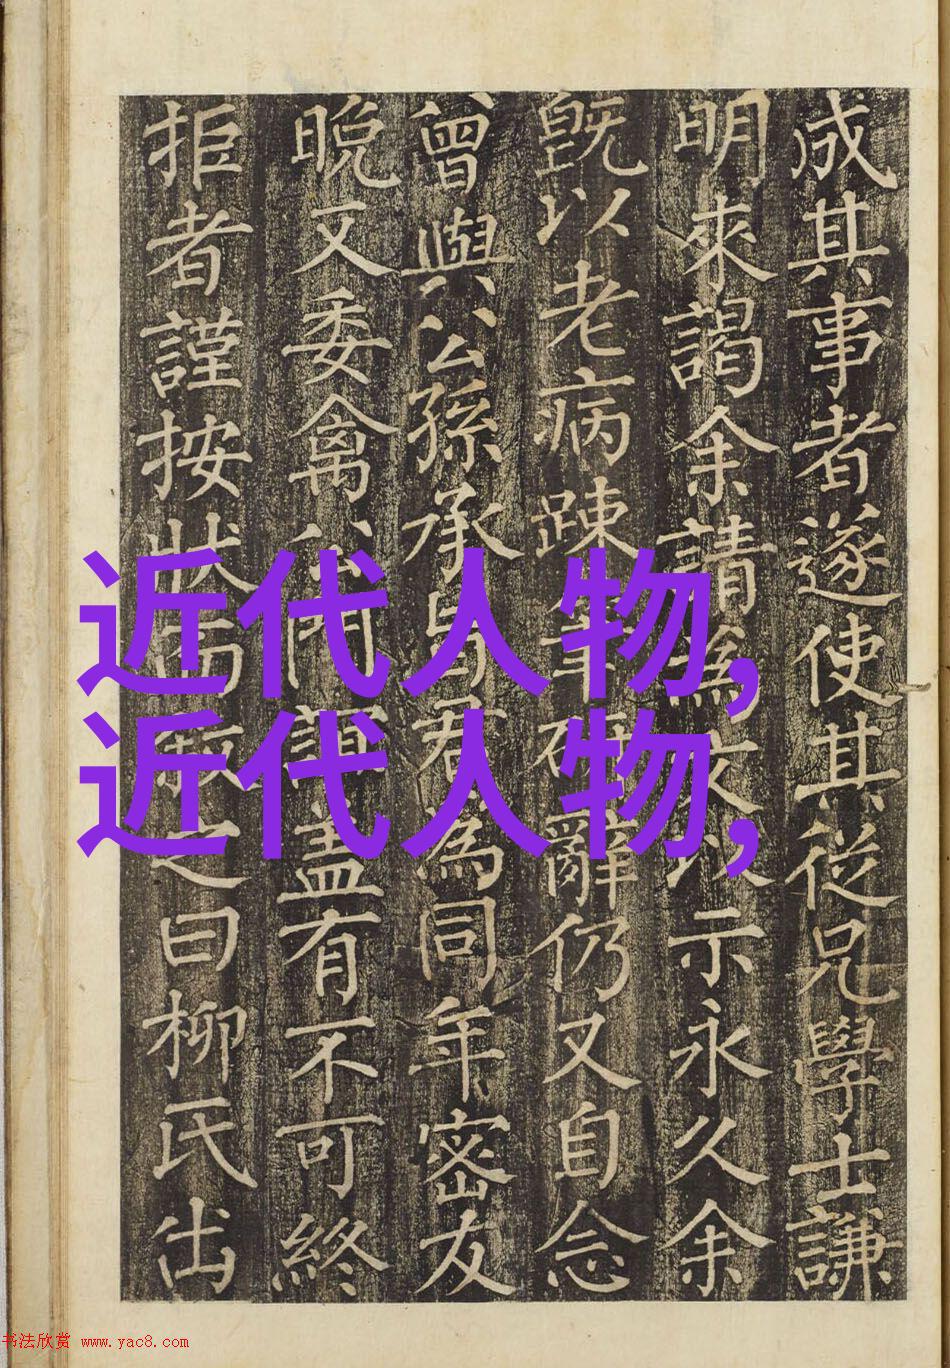 成其事者遂使其從兄學士謙
明來謁余請為文以示永久余
既以老病踈筆硯辭仍又自念
曾與公孫承旨君為同年密友
晚又委禽公門誼蓋有不可終
拒者謹按狀而敘之曰柳氏出
近代人物,
近代人物,
书法欣赏 www.yac8.com